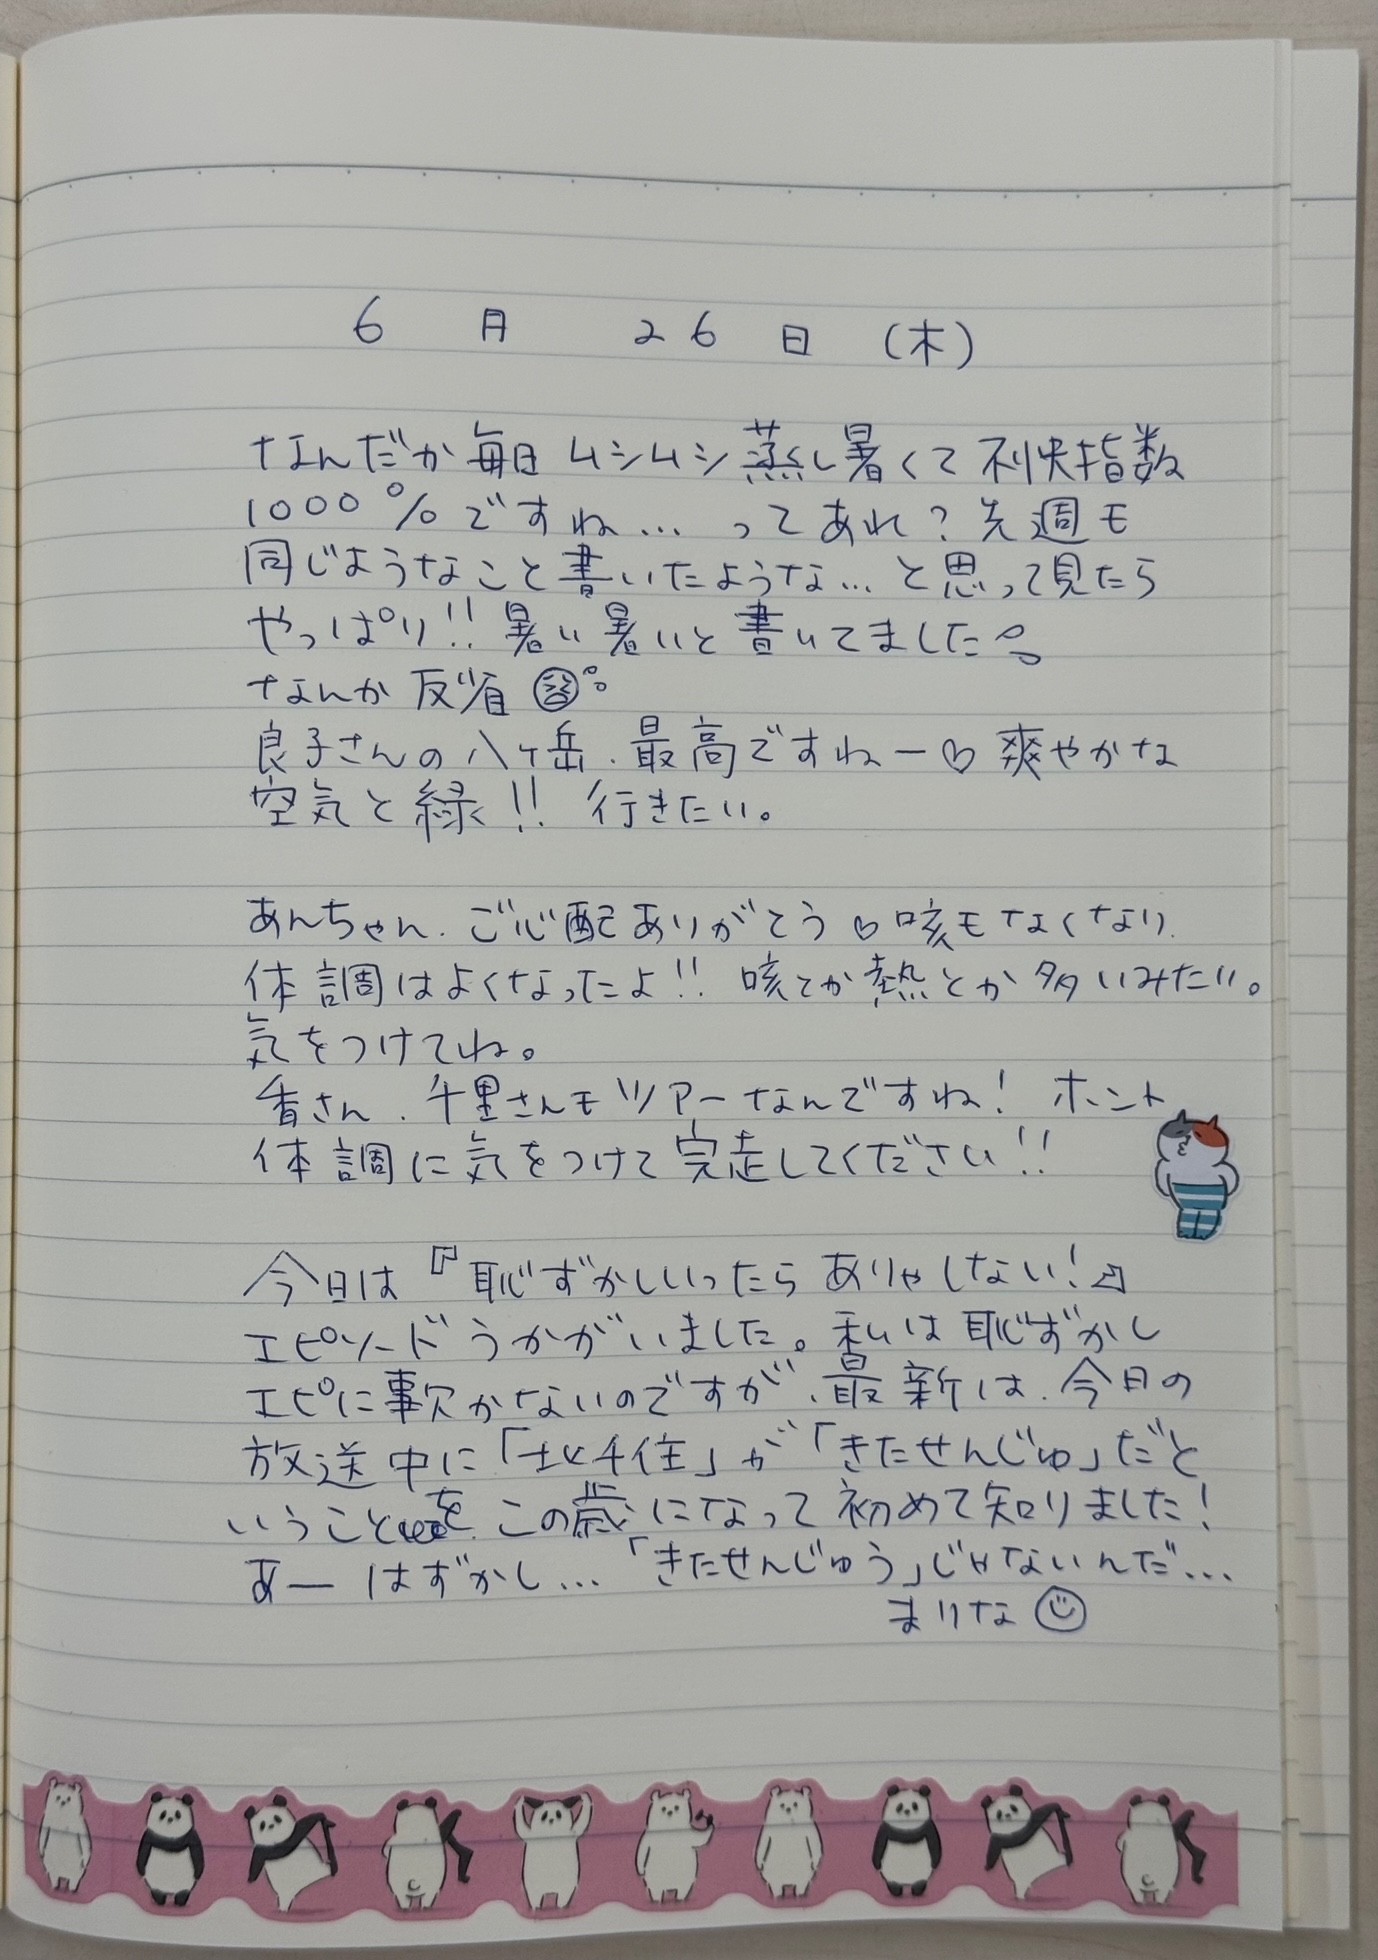 6月 26日 (木)
なんだか毎日ムシムシ蒸し暑くて不快指数
1000%ですね…ってあれ?先週も
同じようなこと書いたような…と思って見たら
やっぱり!!暑い暑いと書いてました
なんか反省
良子さんの八ケ岳、最高ですねー♡爽やかな
空気と緑!! 行きたい。
あんちゃん、ご心配ありがとう♡咳もなくなり、
体調はよくなったよ!! 咳とか熱とか多いみたい。
気をつけてね。
香さん、千里さんもツアーなんですね! ホント
体調に気をつけて完走してください!!
今日は『恥ずかしいったらありゃしない!』
エピソードうかがいました。私は恥ずかし
エピに事欠かないのですが、最新は、今日の
放送中に「北千住」が「きたせんじゅ」だと
いうことを、この歳になって初めて知りました!
あー はずかし…「きたせんじゅう」じゃないんだ…
まりな